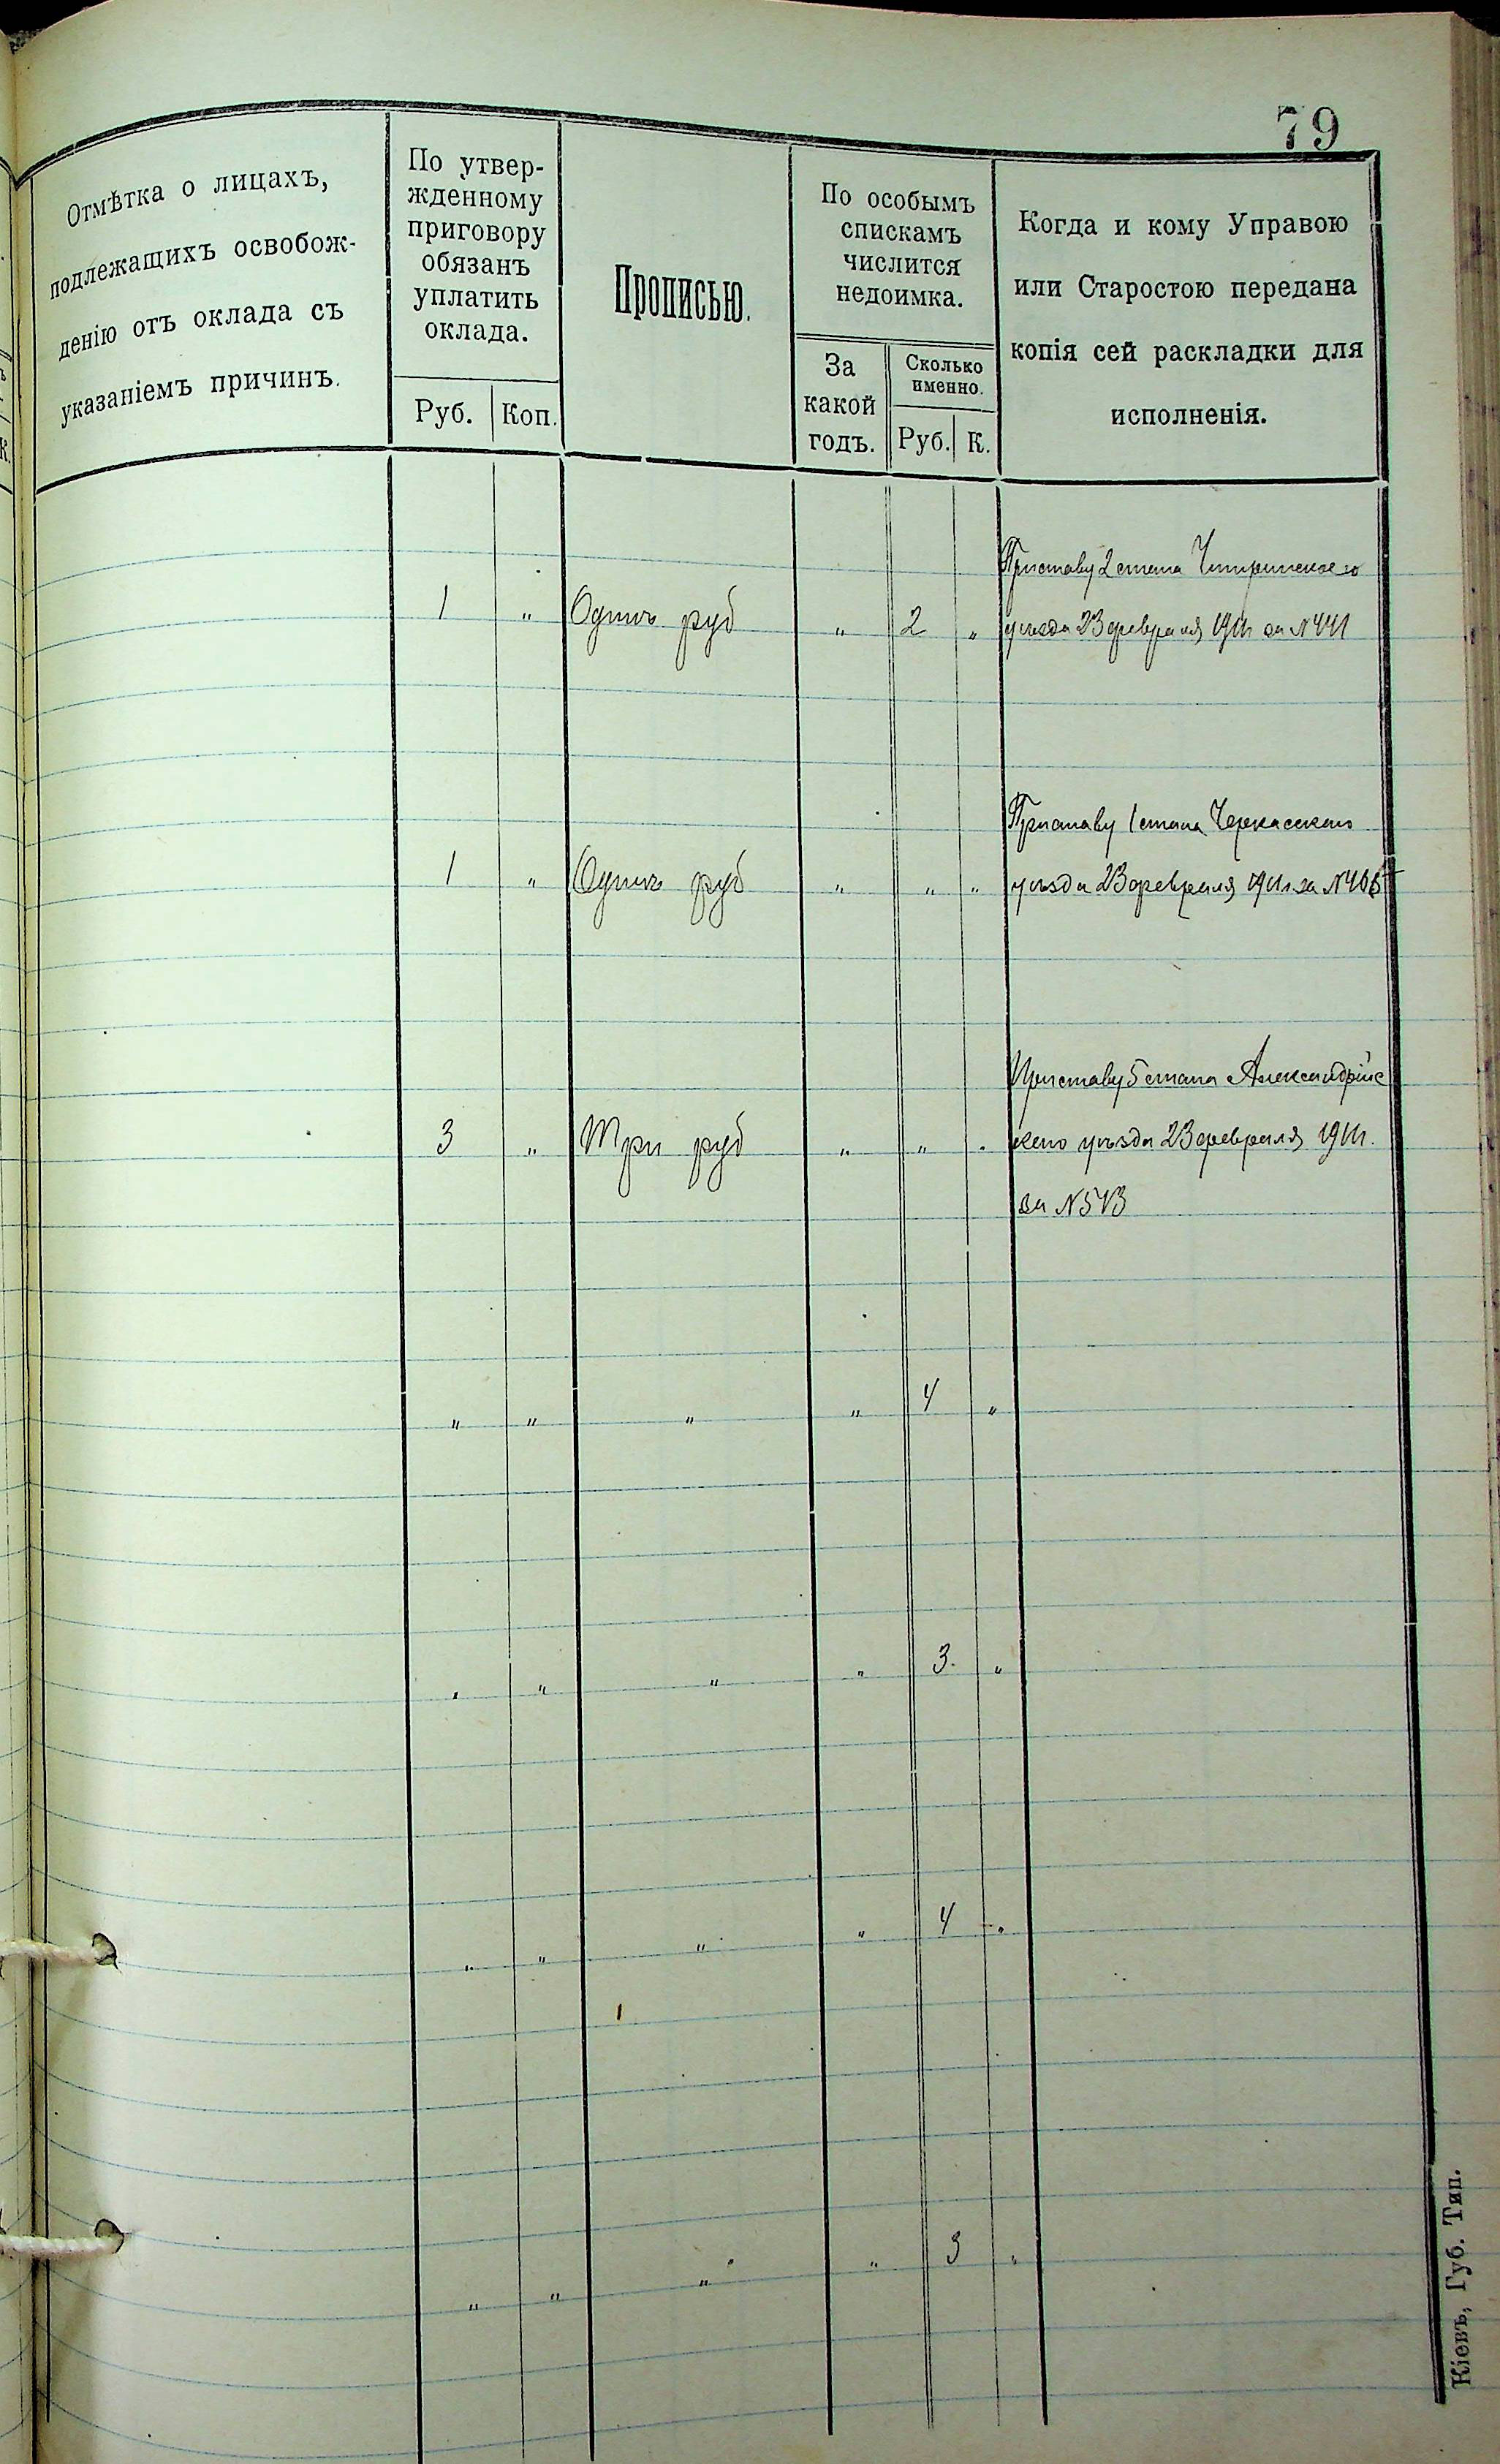 79
Отмѣтка о лицахъ,
подлежащихъ освобож-
денію отъ оклада съ
указаніемъ причинъ.
По утвер-
жденному
приговору
обязанъ
уплатить
оклада.
Руб. Коп.
Прописью.
По особымъ
спискамъ
числится
недоимка.
За
какой
годъ.
Сколько
именно.
Руб. К.
Когда и кому Управою
или Старостою передана
копія сей раскладки для
исполненія.
Приставу 2 стана Чигиринского
1 „ Одинъ руб „ 2 „ уѣзда 23 февраля 1911 за N 441
Приставу 1 стана Черкасского
1 „ Одинъ руб „ „ „ уѣзда 23 февраля 1911 за N
Приставу 5 стана Александрійс
3 „ Три руб „ „ „ кого уѣзда 23 февраля 1911.
за N 543
„ „ „ „ 4 „
„ „ „ „ 3. „
„ „ „ „ 4 „
„ „ „ „ 3 „
Кіевъ, Губ. Тип.